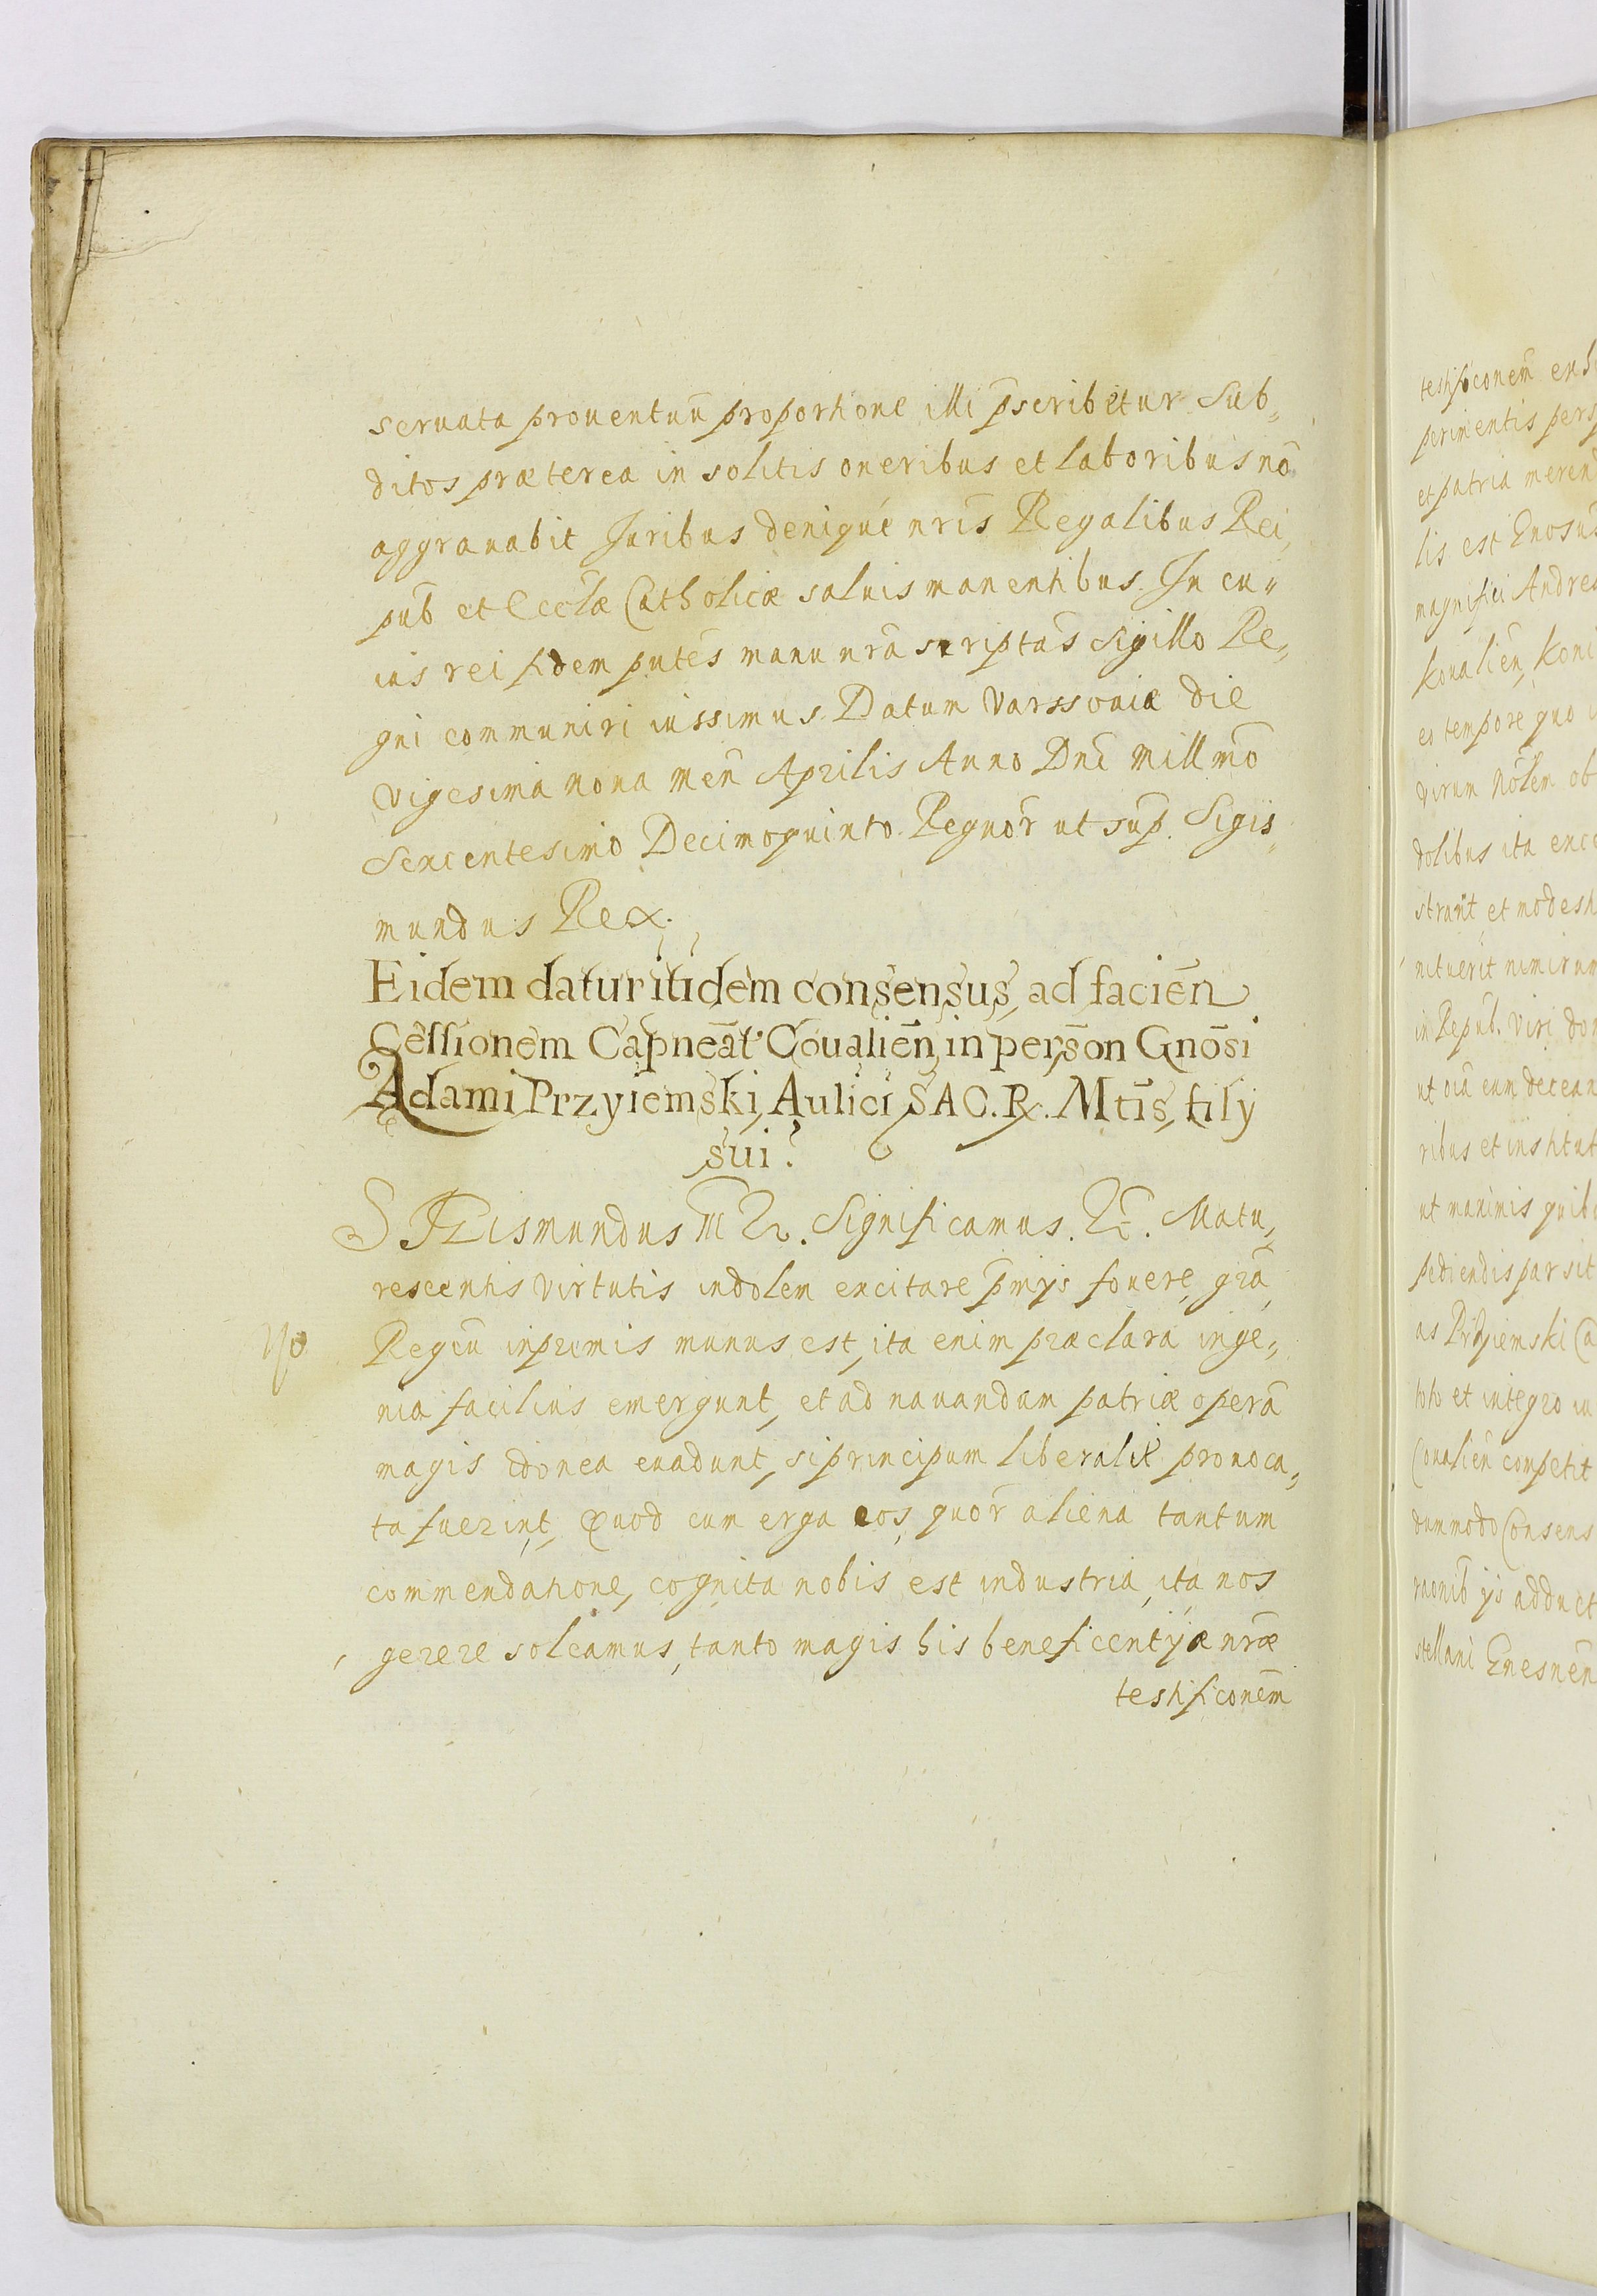 seruata prouentuū proportione illi pscribetur Sub,,
ditos præterea in solitis oneribus et laboribus nō
aggrauabit Juribus deniqué nrīs Regalibus Rei,
pub et Eccłæ Catholicæ saluis manentibus. In cu,,
ius rei fidem pntēs manu nrā scriptas Sigillo Re,,
gni communiri iussimus. Datum Varssouiæ die
Vigesima nona men̄ Aprilis Anno Dnī Millmō
Sexcentesimo Decimoquinto. Regnor̄ ut sup. Sigis,,
mundus Rex.
Eidem datur itidem consensus, ad facien̄
Cessionem Capneāt Coualien̄ in persōn Gnōsi
Adami Przyiemski Aulici SAC. R. Mtīs, filij
sui.
Sigismundus III Significamus. Matu,,
rescentis virtutis indolem excitare pmijs fouere, grā,
Regiū inprimis munus est, ita enim præclara inge,,
nia facilius emergunt, et ad nauandam patriæ operā
magis idonea euadunt, si principum liberalit prouoca,,
ta fuerint, Quod cum erga eos, quor̄ aliena tantum
commendatione, cognita nobis est industria, ita nos
gerere soleamus, tanto magis his beneficentijæ nrǣ
testificonēm
testificonēm
perimentis
et patria
lis est Gnosus
magnifici
Koualien̄,
eo tempore quo
virum Nōlem ob
dolibus ita
strarit et
nituerit nimirum
in Repub. Viri
ut oīa eum
ribus et
ut maximis
pediendis par sit
as Przyiemski
et integro
Coualien̄ competit
dummodo Consens
ijs adduct
stellani Gnesnēn